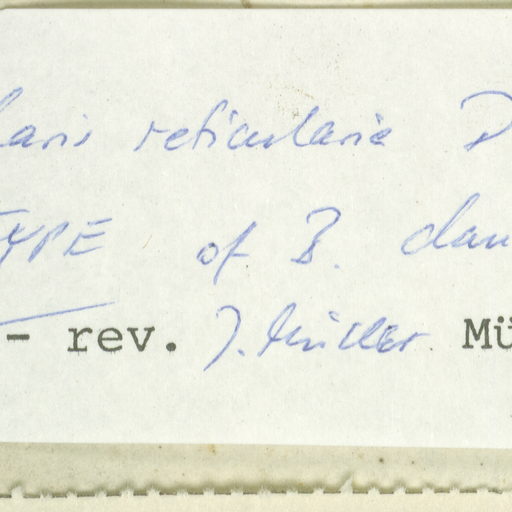 laris reticularia D
TYPE of B. dan
- rev. J. Müller Mü